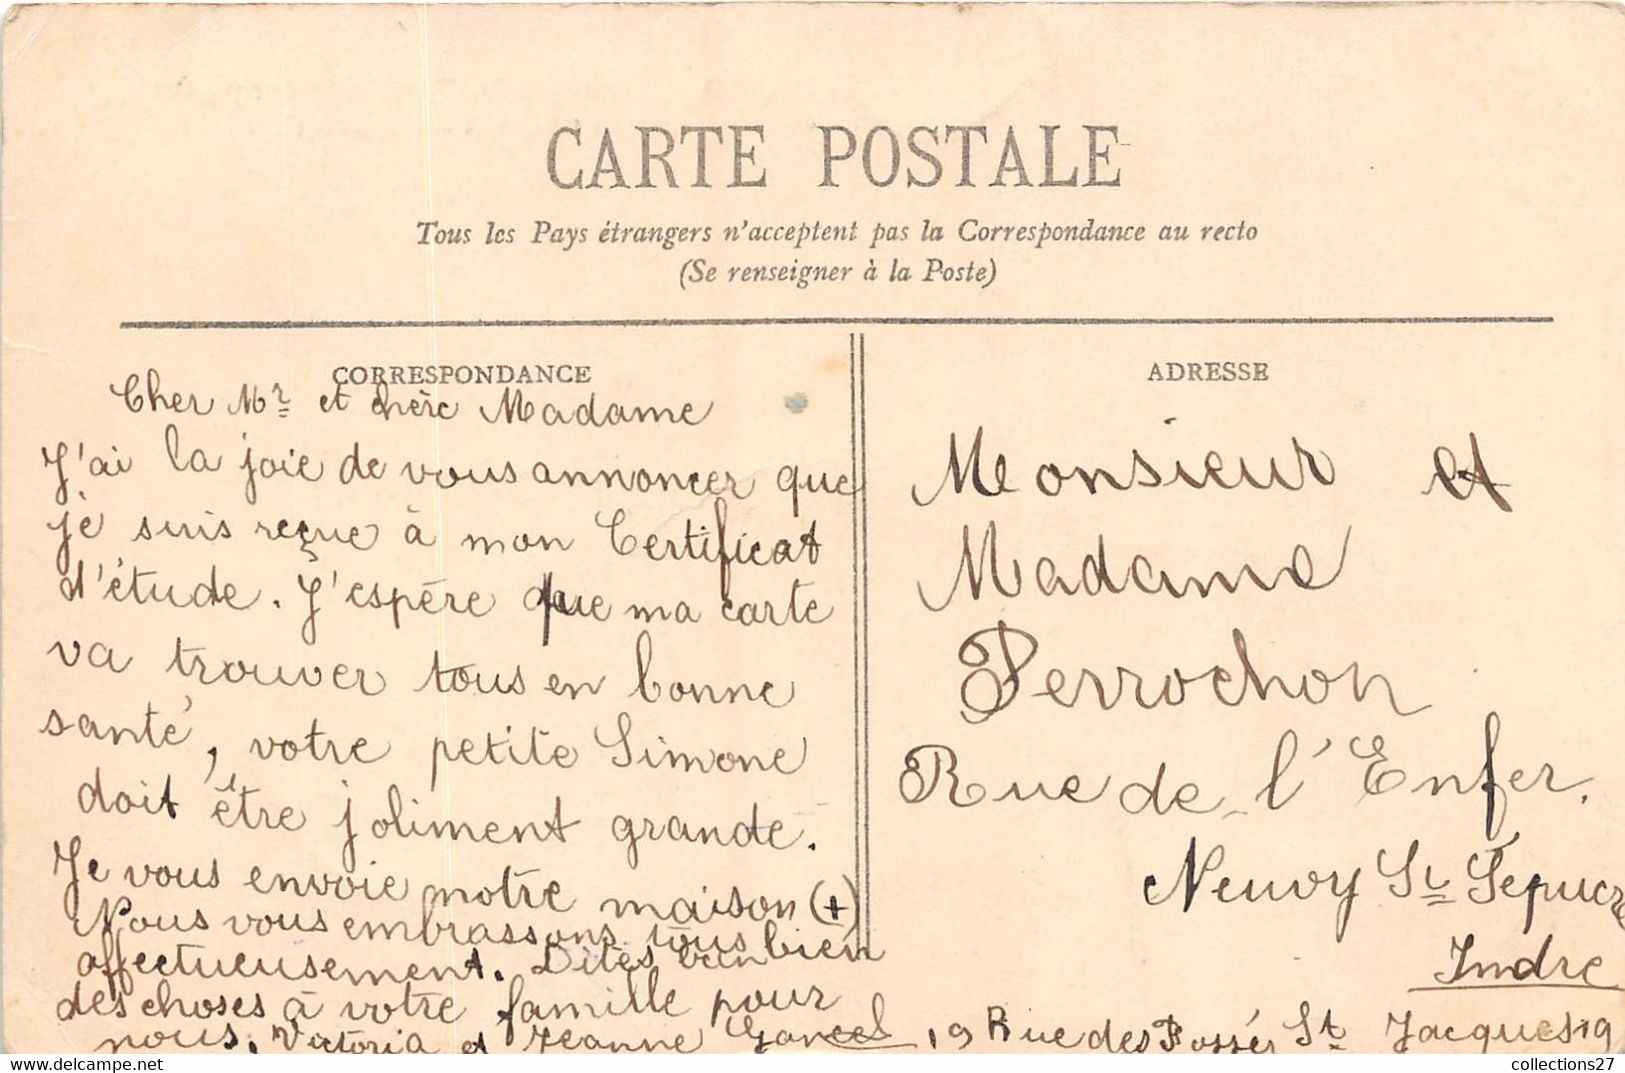 CARTE POSTALE
Tous les Pays étrangers n'acceptent pas la Correspondance au recto
(Se renseigner à la Poste)
CORRESPONDANCE
Cher Mr et chère Madame
J'ai la joie de vous annoncer que
je suis reçue à mon Certificat
d'étude. J'espère que ma carte
va trouver tous en bonne
santé, votre petite Simone
doit être joliment grande.
Je vous envoie notre maison (+)
Nous vous embrassons tous bien
affectueusement. Dites bien
des choses à votre famille pour
nous. Victoria et Jeanne 19 Rue des Fossés St Jacques 19
ADRESSE
Monsieur et
Madame
Perrochon
Rue de l'Enfer.
Neuvy St Sepucre
Indre
https://www.delcampe.net
collections27